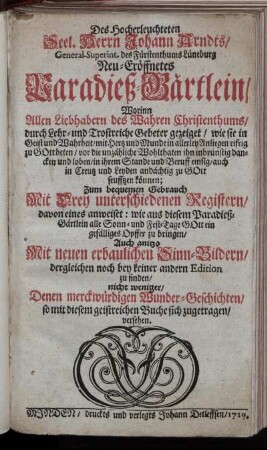 Des Hocherleuchteten
Seel. Herrn Johann Arndts/
General-Superint. des Fürstenthums Lüneburg
Neu-Eröffnetes
Paradieß-Gärtlein/
Worinn
Allen Liebhabern des Wahren Christenthums/
durch Lehr- und Trostreiche Gebeter gezeiget / wie sie in
Geist und Wahrheit mit Hertz und Munde in allerley Anliegen eifrig
zu GOtt beten / vor die unzählliche Wohlthaten ihn inbrünstig dan-
cken und loben/in ihrem Stande und Beruff emsig/auch
in Creutz und Leyden andächtig zu GOtt
seufftzen können;
Zum bequemen Gebrauch
Mit Drey unterschiedenen Registern/
davon eines anweiset: wie aus diesem Paradieß-
Gärtlein alle Sonn- und Fest-Tage GOtt ein
gefälliges Opffer zu bringen/
Auch anitzo
Mit neuen erbaulichen Sinn-Bildern/
dergleichen noch bey keiner andern Edition
zu finden/
nicht weniger/
Denen merckwürdigen Wunder-Geschichten/
so mit diesem geistreichen Buche sich zugetragen/
versehen.
MINDEN/ druckts und verlegts Johann Detleffsen/1719.